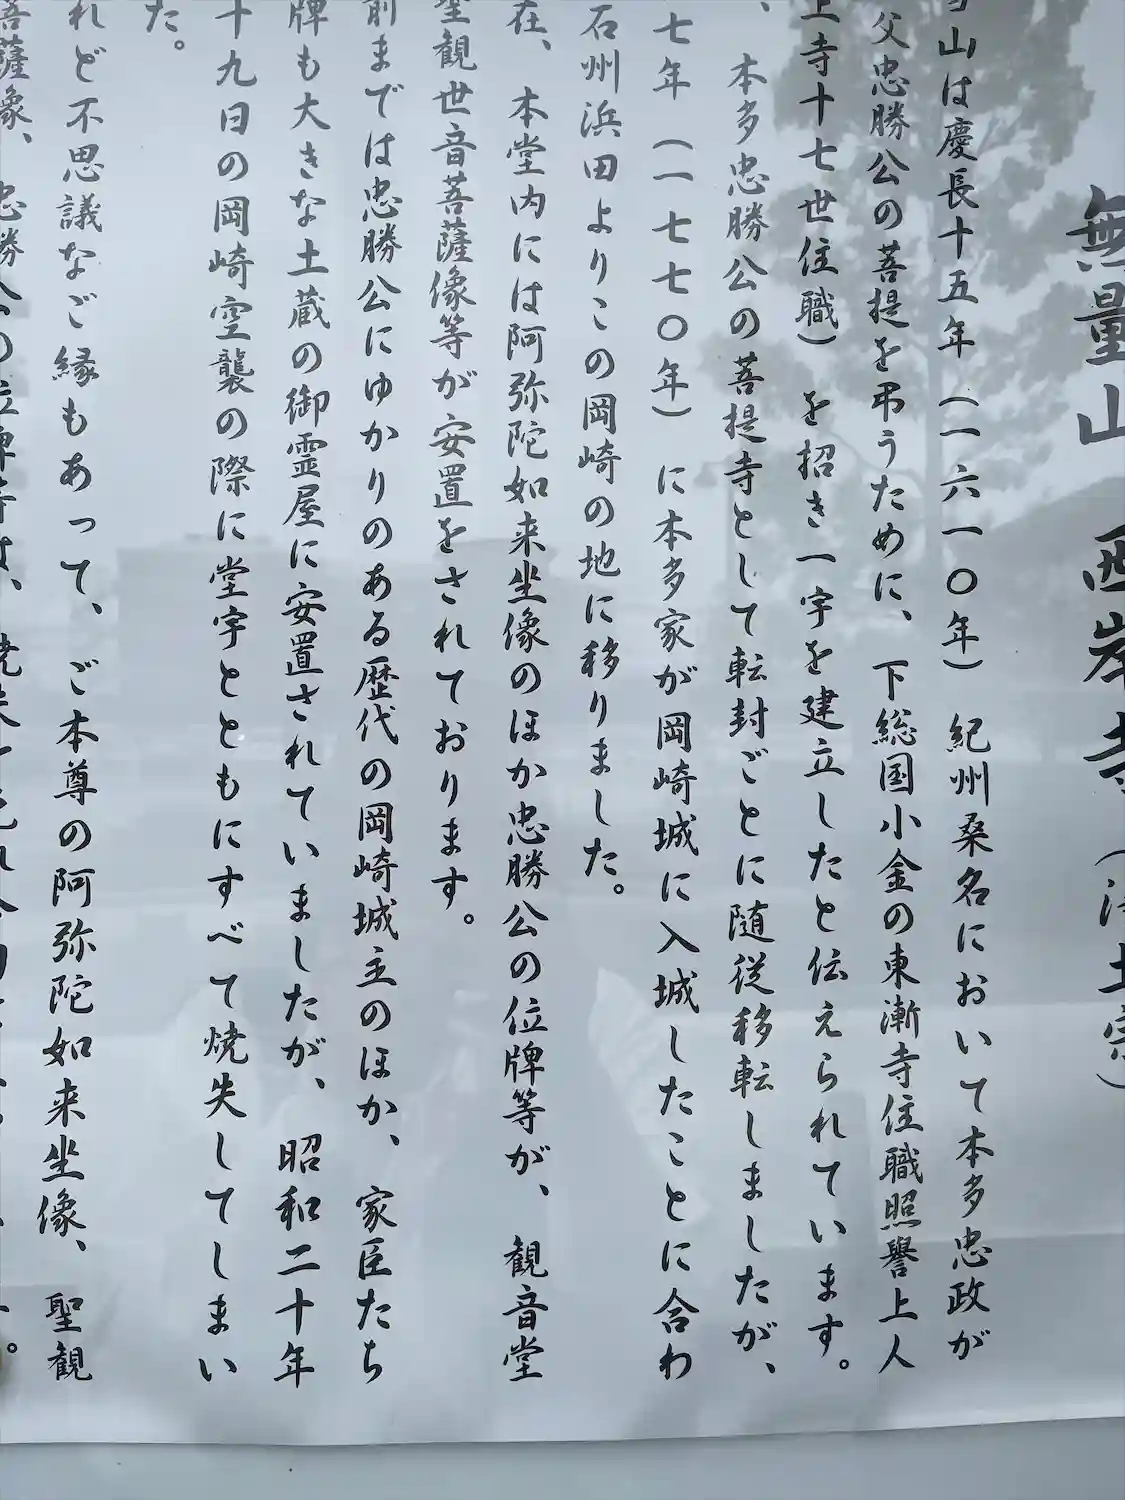 無量山 西岸寺(浄土宗)
山は慶長十五年(一六一〇年) 紀州桑名において本多忠政が
父忠勝公の菩提を弔うために、下総国小金の東漸寺住職照譽上人
上寺十七世住職) を招き一宇を建立したと伝えられています。
、本多忠勝公の菩提寺として転封ごとに随従移転しましたが、
七年(一七七〇年) に本多家が岡崎城に入城したことに合わ
石州浜田よりこの岡崎の地に移りました。
在、本堂内には阿弥陀如来坐像のほか忠勝公の位牌等が、観音堂
聖観世音菩薩像等が安置をされております。
前までは忠勝公にゆかりのある歴代の岡崎城主のほか、家臣たち
牌も大きな土蔵の御霊屋に安置されていましたが、昭和二十年
十九日の岡崎空襲の際に堂宇とともにすべて焼失してしまい
た。
れど不思議なご縁もあって、ご本尊の阿弥陀如来坐像、聖観
菩薩像、忠勝公の位牌等は、